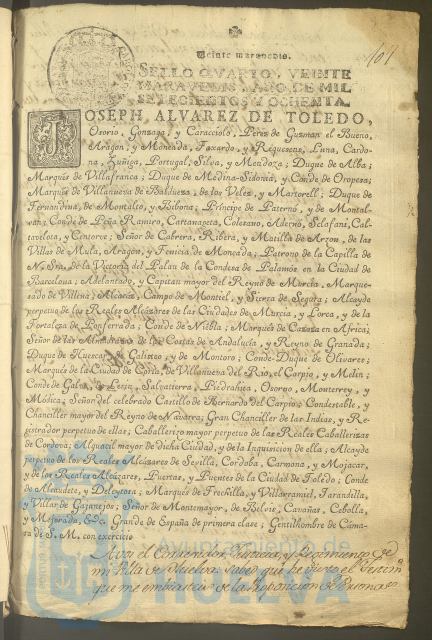 101
Veinte maravedis.
SELLO QVARTO, VEINTE
MARAVEDIS, AÑO DE MIL
SETECIENTOS Y OCHENTA.
JOSEPH ALVAREZ DE TOLEDO,
Osorio, Gonzaga, y Caracciolo, Perez de Guzman el Bueno,
Aragon, y Moncada, Faxardo, y Requesens, Luna, Cardo-
na, Zuñiga, Portugal, Silva, y Mendoza; Duque de Alba;
Marqués de Villafranca; Duque de Medina-Sidonia, y Conde de Oropesa;
Marqués de Villanueva de Baldueza, de los Velez, y Martorell; Duque de
Fernandina, de Montalto, y Bibona; Príncipe de Paternó, y de Montal-
van; Conde de Peña Ramiro, Caltanageta, Colesano, Adernó, Sclafani, Cal-
tavelota, y Centorve; Señor de Cabrera, Ribera, y Matilla de Arzon, de las
Villas de Mula, Aragon, y Fenicia de Moncada; Patrono de la Capilla de
N. Sra. de la Victoria del Palau de la Condesa de Palamós en la Ciudad de
Barcelona; Adelantado, y Capitan mayor del Reyno de Murcia, Marque-
sado de Villena; Alcaráz, Campo de Montiel, y Sierra de Segura; Alcayde
perpetuo de los Reales Alcázares de las Ciudades de Murcia, y Lorca, y de la
Fortaleza de Ponferrada; Conde de Niebla; Marqués de Cazaza en Africa;
Señor de las Almadravas de las Costas de Andalucía, y Reyno de Granada;
Duque de Huescar, de Galisteo, y de Montoro; Conde-Duque de Olivares;
Marqués de la Ciudad de Coria, de Villanueva del Rio, el Carpio, y Eliche;
Conde de Galve, de Lerin, Salvatierra, Piedrahita, Osorno, Monterrey, y
Módica; Señor del celebrado Castillo de Bernardo del Carpio; Condestable, y
Chanciller mayor del Reyno de Navarra; Gran Chanciller de las Indias, y Re-
gistrador perpetuo de ellas; Caballerizo mayor perpetuo de las Reales Caballerizas
de Cordova; Alguacil mayor de dicha Ciudad, y de la Inquisicion de ella; Alcayde
perpetuo de los Reales Alcázares de Sevilla, Cordoba, Carmona, y Mojacar,
y de los Reales Alcázares, Puertas, y Puentes de la Ciudad de Toledo; Conde
de Alcaudete, y Deleytosa; Marqués de Frechilla, y Villarramiel, Tarandilla,
y Villar de Gajanejos; Señor de Montemayor, de Belvis, Cavañas, Cebolla,
y Mejorada, &c. Grande de España de primera clase; Gentilhombre de Cáma-
ra de S. M. con exercicio
A vos el Consejo, Justicia, y Regimiento de
mi Villa de Huelva: Sabed que he visto el testim.
que me embiasteis de la Proposicion de Personas
Ayuntamiento de
HUELVA